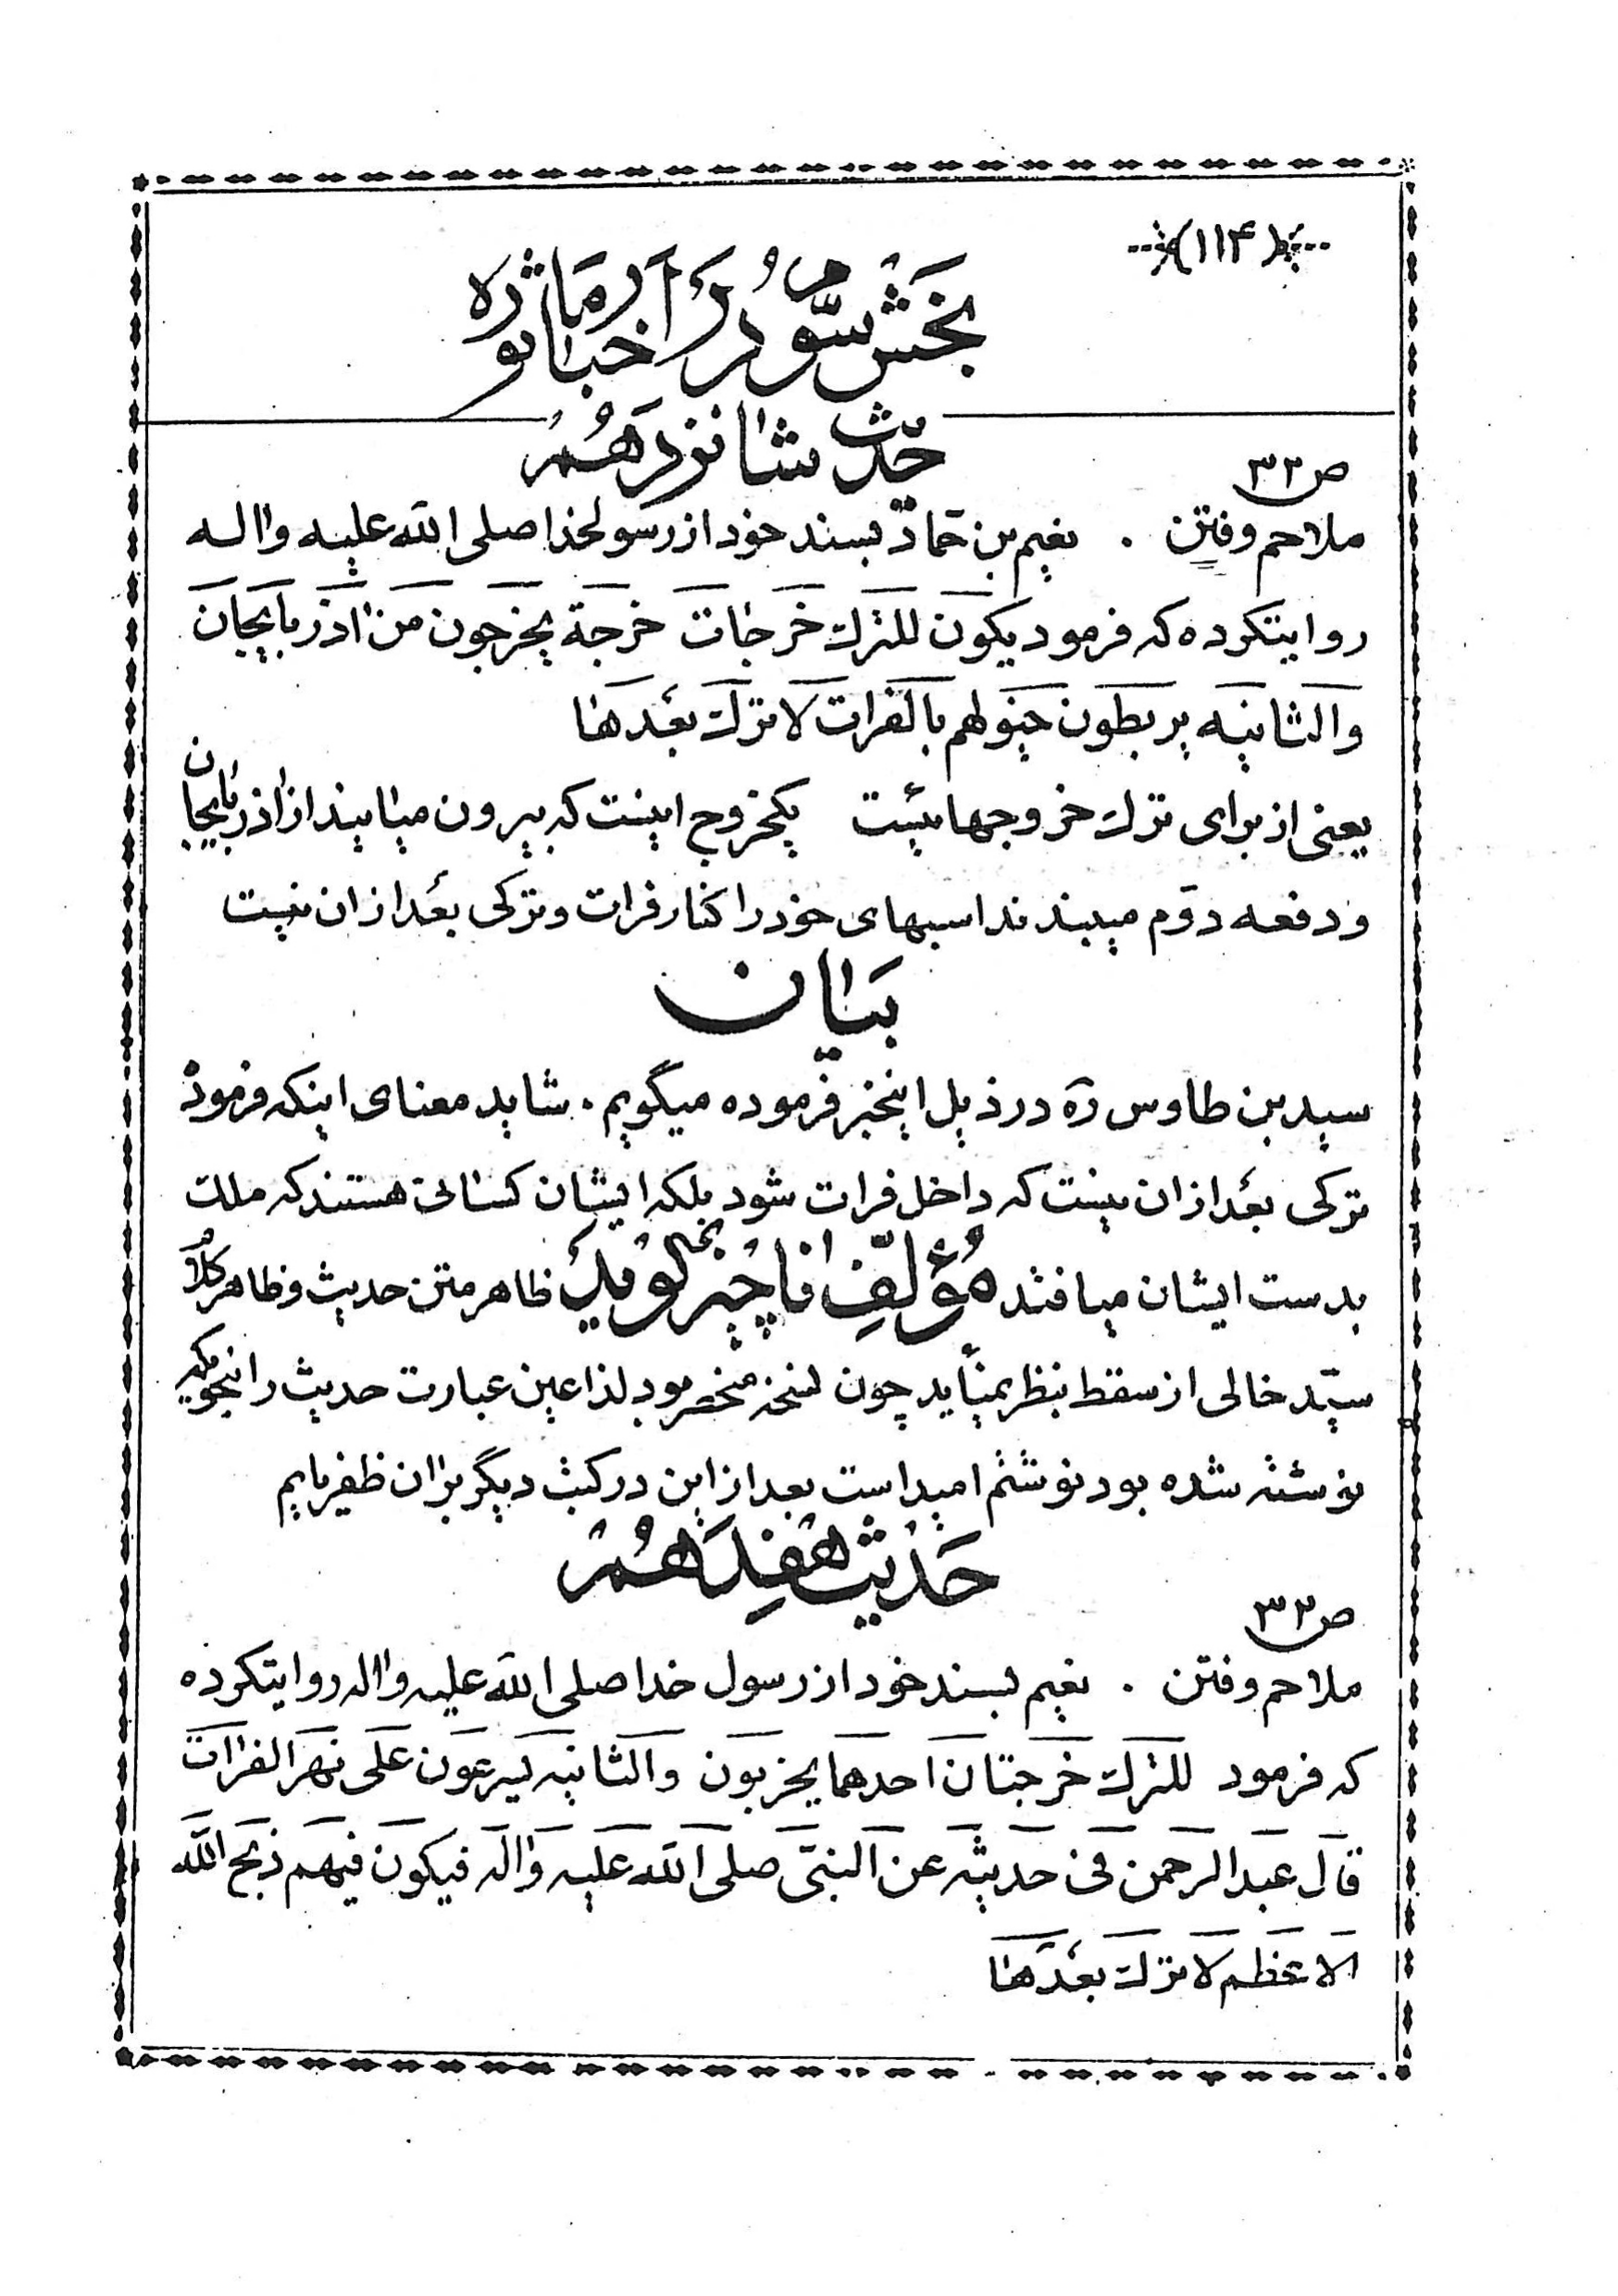 (۱۱۴)
بخش سوم در اخبار ماثوره
حدیث شانزدهم
ص ۳۲
ملاحم وفتن . نعیم بن حماد بسند خود از رسولخدا صلی الله علیه واله
روایتکرده که فرمود یکون للترک خرجات خرجة یخرجون من اذربایجان
والثانیه یربطون خیولهم بالفرات لا ترک بعدها
یعنی از برای ترک خروجهائیست یکخروج اینست که بیرون میایند از اذربایجان
و دفعه دوم میبندند اسبهای خود را کنار فرات و ترکی بعد از ان نیست
بیان
سید بن طاوس ره در ذیل اینخبر فرموده میگویم . شاید معنای اینکه فرمود
ترکی بعد از ان نیست که داخل فرات شود بلکه ایشان کسانی هستند که ملک
بدست ایشان میافتد مؤلف ناچیز گوید ظاهر متن حدیث و ظاهر کلام
سید خالی از سقط بنظر نمیاید چون نسخه منحصر بود لذا عین عبارت حدیث را بنحویکه
نوشته شده بود نوشتم امید است بعد از این در کتب دیگر بران ظفر یابم
حدیث هفدهم
ص ۳۲
ملاحم وفتن . نعیم بسند خود از رسول خدا صلی الله علیه واله روایتکرده
که فرمود للترک خرجتان احدهما یخربون والثانیه یسرعون علی نهر الفرات
قال عبد الرحمن فی حدیثه عن النبی صلی الله علیه واله فیکون فیهم ذبح الله
الاعظم لا ترک بعدها